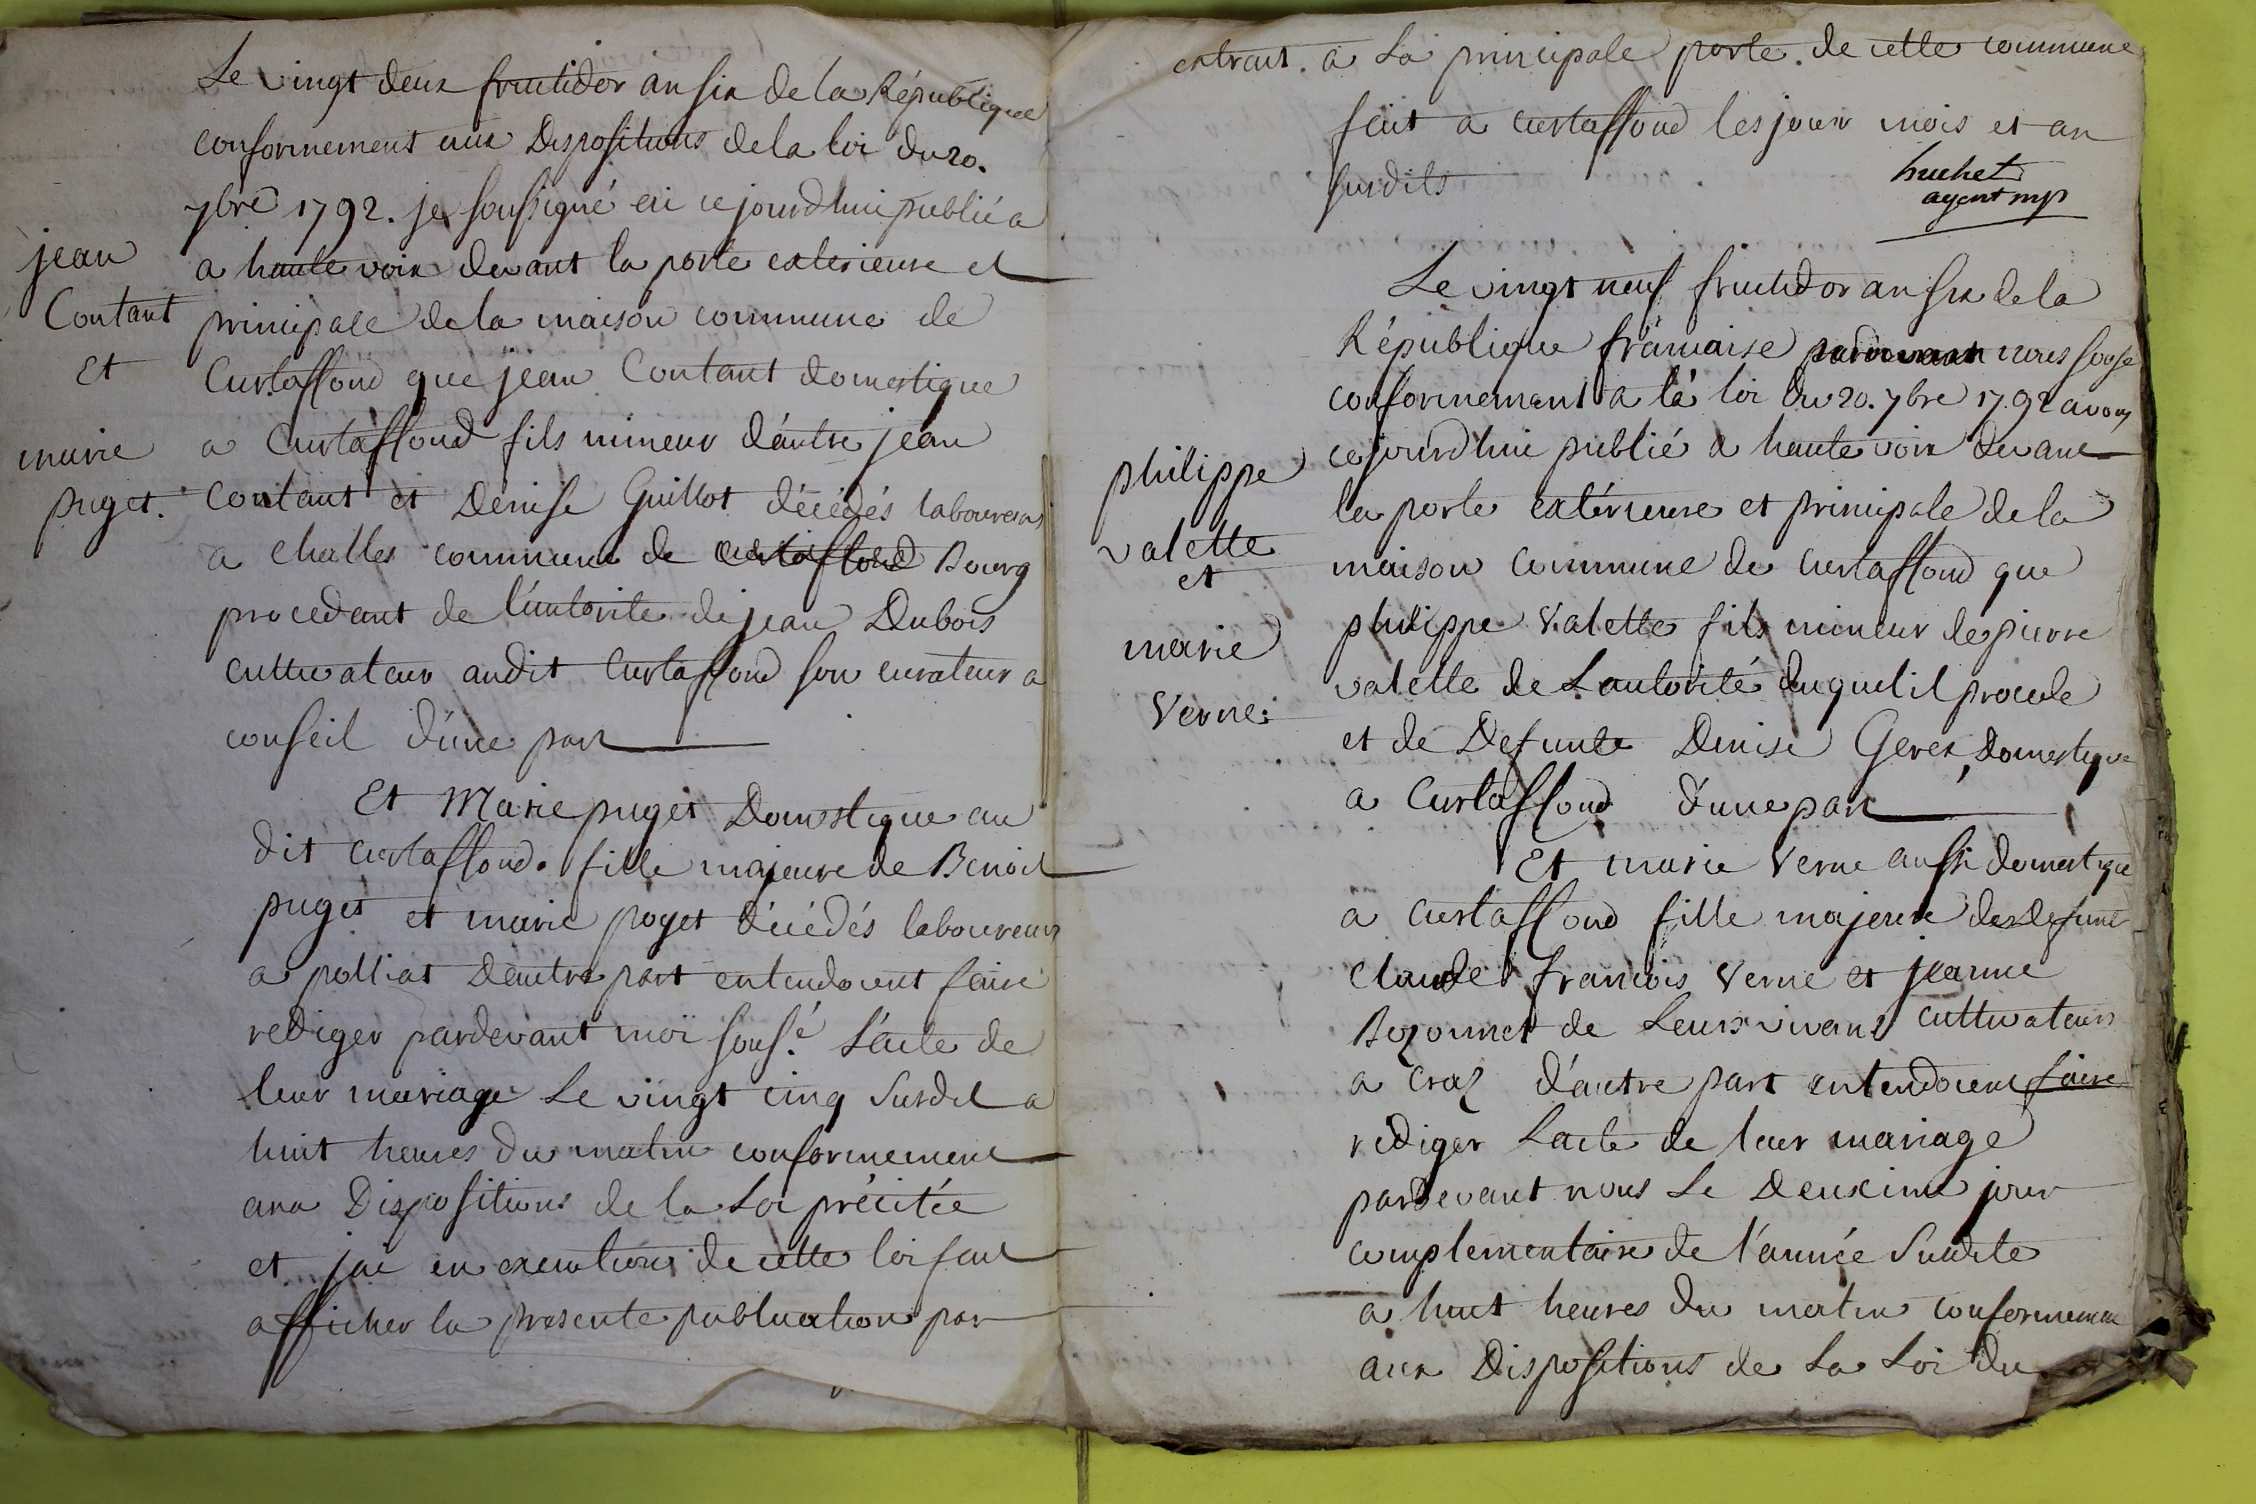 Le vingt deux fructidor an six de la République
conformement aux Dispositions de la loi du 20.
7bre 1792. je soussigné ai cejourdhui publié a
a haute voix devant la porte exterieure et
principale de la maison commune de
Curtaffond que jean Contant domestique
a Curtaffond fils mineur d'autre jean
Contant et Dénise Guillot décédés laboureurs
a Challes commune de Curtaffond Bourg
procedant de l'autorite de jean Dubois
cultivateur audit Curtaffond son curateur a
conseil d'une part
Et Marie puget Domestique au
dit Curtaffond. fille majeure de Benoit
puget et marie poyet décédés laboureurs
a polliat d'autre part entendoient faire
rediger pardevant moi sousé. L'acte de
leur mariage Le vingt cinq Susdit a
huit heures du matin conformement
aux Dispositions de la Loi précitée
et jai en execution de cette loi fait
afficher la presente publication par
jean
Contant
Et
marie
puget.
extrait. a La principale porte. de cette commune
fait a Curtaffond les jour mois et an
susdits
huchet
agent mpl
Le vingt neuf fructidor an six de la
République française pardevant nous sousé
conformement a la loi du 20. 7bre 1792 avons
cejourdhui publié a haute voix devant
la porte extérieure et principale de la
maison commune de Curtaffond que
philippe Valette fils mineur de pierre
valette de Lautorité duquel il procede
et de Defunte Denise Geres, Domestique
a Curtaffond d'une part
Et marie Verne aussi domestique
a Curtaffond fille majeure des defunts
Claude françois Verne et jeanne
Bozonnet de Leurs vivant cultivateurs
a Cras d'autre part entendoient faire
rediger Lacte de leur mariage
pardevant nous Le Deuxime jour
complementaire de l'année Susdite
a huit heures du matin conformement
aux Dispositions de La Loi du
philippe
valette
et
marie
Verne.